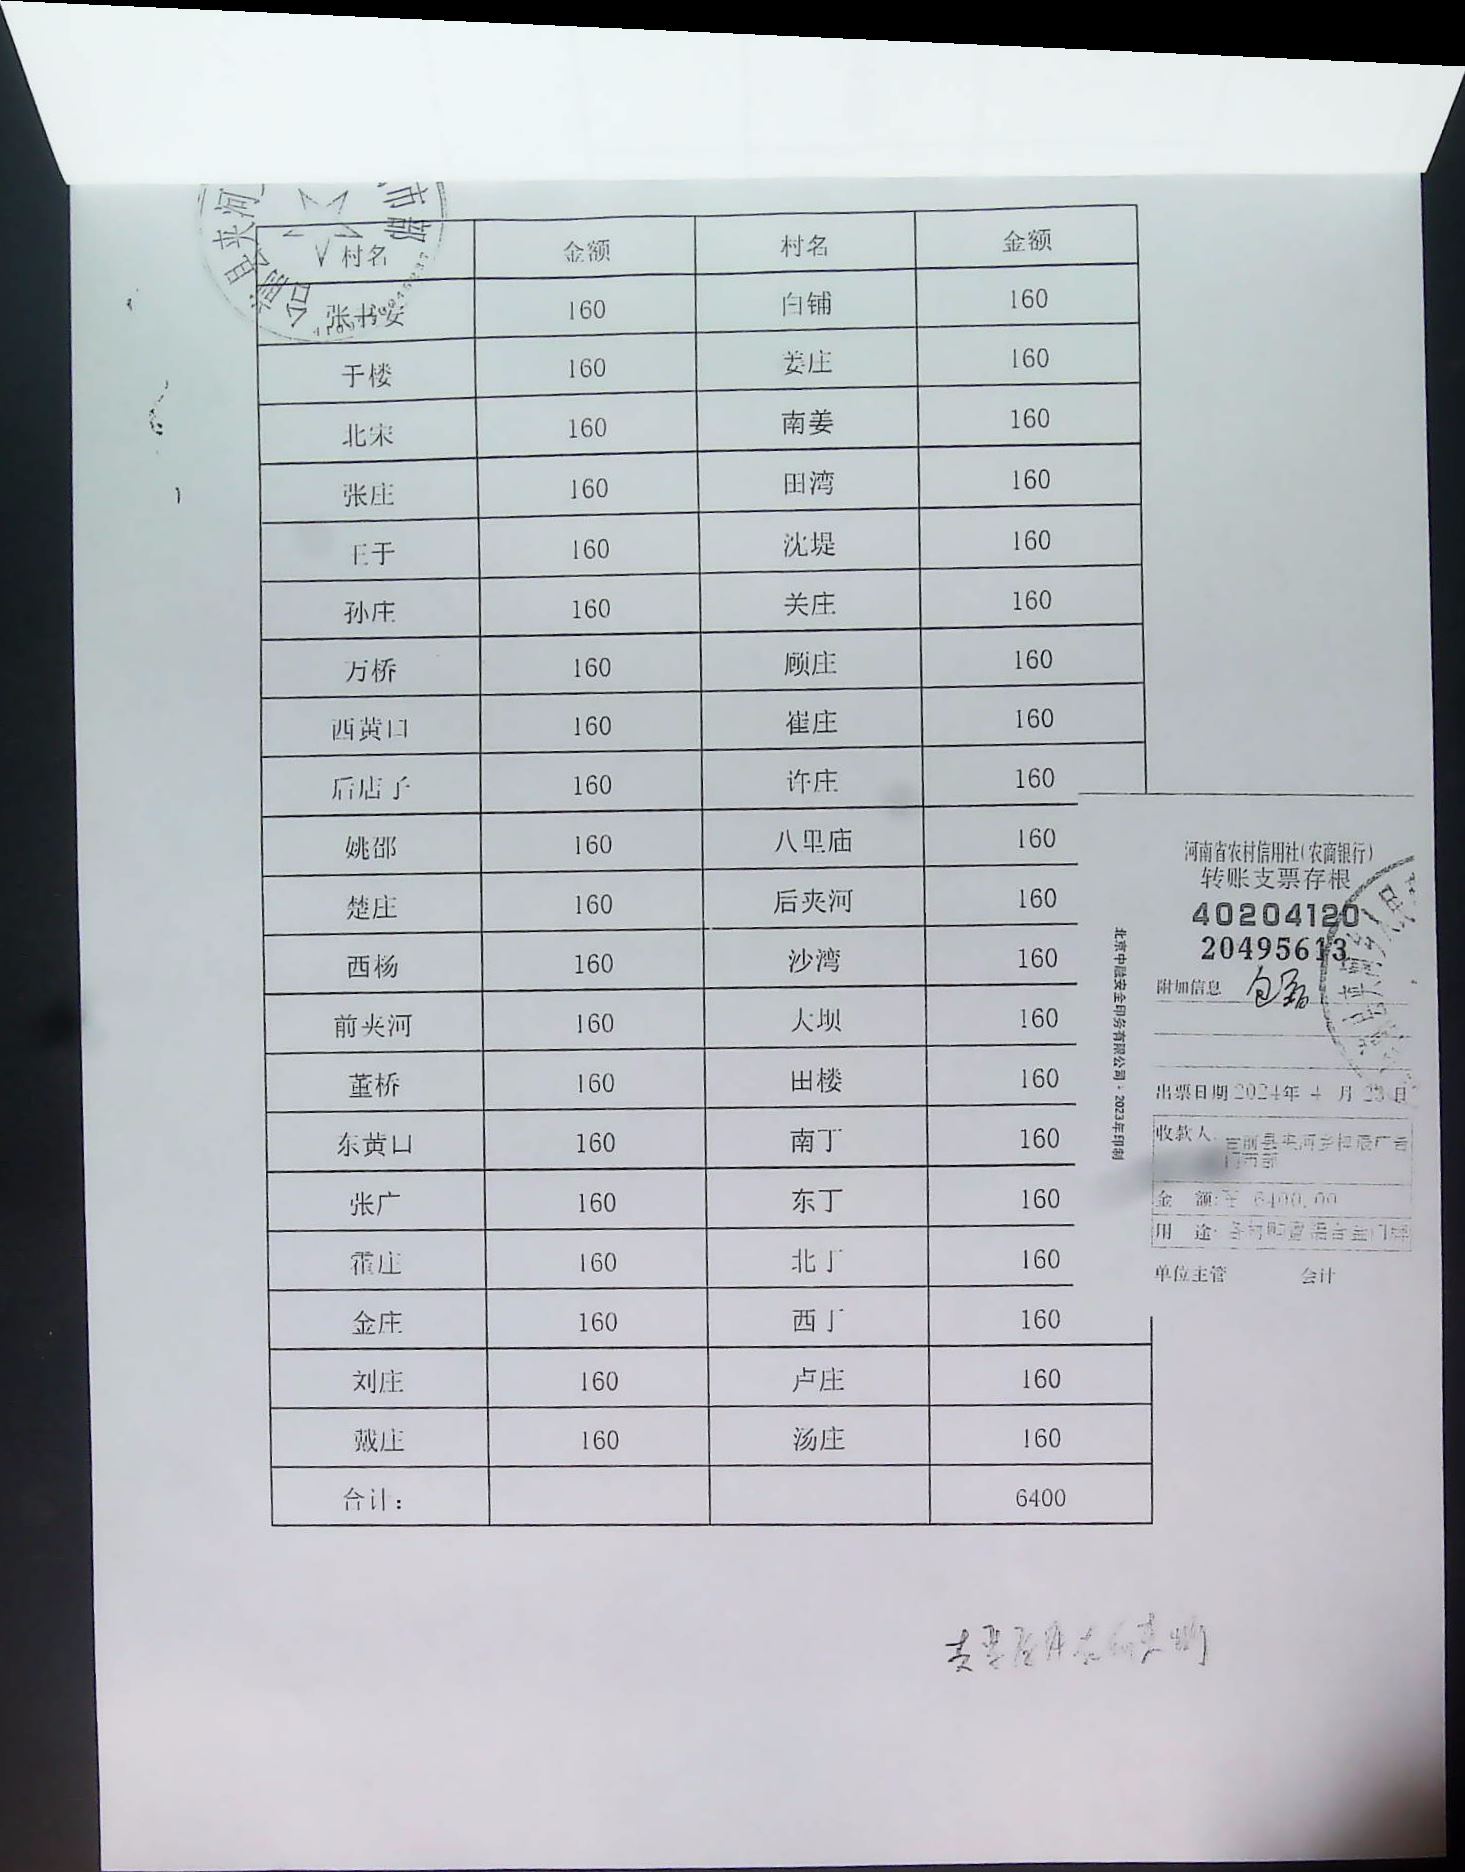 村名 金额 村名 金额
张书安 160 白铺 160
于楼 160 姜庄 160
北宋 160 南姜 160
张庄 160 田湾 160
王于 160 沈堤 160
孙庄 160 关庄 160
万桥 160 顾庄 160
西黄口 160 崔庄 160
后店子 160 许庄 160
姚邵 160 八里庙 160
楚庄 160 后夹河 160
西杨 160 沙湾 160
前夹河 160 大坝 160
董桥 160 田楼 160
东黄口 160 南丁 160
张广 160 东丁 160
霍庄 160 北丁 160
金庄 160 西丁 160
刘庄 160 卢庄 160
戴庄 160 汤庄 160
合计： 6400
河南省农村信用社(农商银行)
转账支票存根
40204120
20495613
附加信息
出票日期 2024年 4 月 23 日
收款人: 台前县夹河乡 广告
门市部
金 额: 6400.00
用 途:
单位主管 会计
北京中融安全印务有限公司·2023年印制